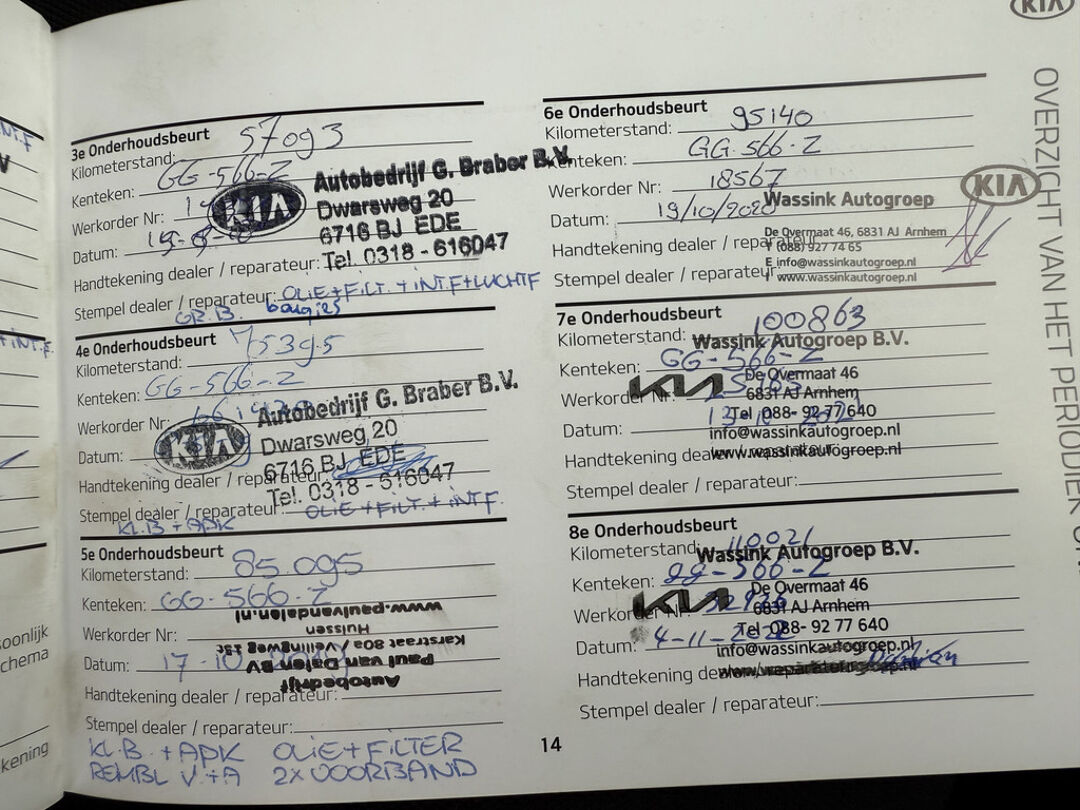 KIA
OVERZICHT VAN HET PERIODIEK
3e Onderhoudsbeurt
Kilometerstand: 57093
Kenteken: GG-566-Z
Werkorder Nr:
Datum:
Handtekening dealer / reparateur:
Stempel dealer / reparateur: OLIE+FILT. + INT.F+LUCHTF
GR.B. bougies
KIA
Autobedrijf G. Braber B.V.
Dwarsweg 20
6716 BJ EDE
Tel. 0318 - 616047
4e Onderhoudsbeurt
Kilometerstand: 75395
Kenteken: GG-566-Z
Werkorder Nr:
Datum:
Handtekening dealer / reparateur:
Stempel dealer / reparateur: OLIE+FILT.+INT.F.
KL.B + APK
KIA
Autobedrijf G. Braber B.V.
Dwarsweg 20
6716 BJ EDE
Tel. 0318 - 616047
5e Onderhoudsbeurt
Kilometerstand: 85095
Kenteken: GG-566-Z
Werkorder Nr:
Datum: 17-10
Handtekening dealer / reparateur:
Stempel dealer / reparateur:
Autobedrijf
Paul van Dalen BV
Karstraat 80a / Veilingweg
Huissen
www.paulvandalen.nl
KL.B. + APK OLIE+FILTER
REMBL V.+A 2X VOORBAND
6e Onderhoudsbeurt
Kilometerstand: 95140
Kenteken: GG-566-Z
Werkorder Nr: 18567
Datum: 19/10/2020
Handtekening dealer / reparateur:
Stempel dealer / reparateur:
Wassink Autogroep
KIA
De Overmaat 46, 6831 AJ Arnhem
T (088) 927 74 65
E info@wassinkautogroep.nl
I www.wassinkautogroep.nl
7e Onderhoudsbeurt
Kilometerstand: 100863
Kenteken: GG-566-Z
Werkorder Nr:
Datum:
Handtekening
Stempel dealer / reparateur:
Wassink Autogroep B.V.
KIA
De Overmaat 46
6831 AJ Arnhem
Tel 088- 92 77 640
info@wassinkautogroep.nl
www.wassinkautogroep.nl
8e Onderhoudsbeurt
Kilometerstand: 110021
Kenteken: gg-566-Z
Werkorder Nr:
Datum: 4-11-2022
Handtekening
Stempel dealer / reparateur:
Wassink Autogroep B.V.
KIA
De Overmaat 46
6831 AJ Arnhem
Tel 088- 92 77 640
info@wassinkautogroep.nl
14